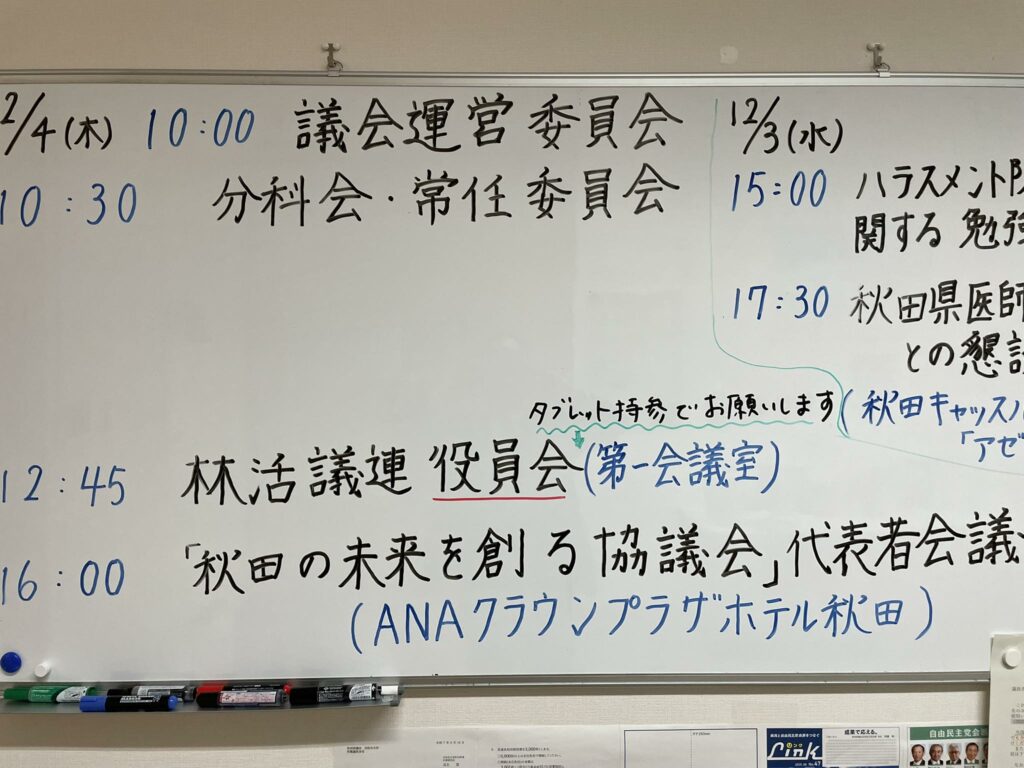 2/4(木) 10:00 議会運営委員会
10:30 分科会・常任委員会
タブレット持参でお願いします
12:45 林活議連 役員会(第一会議室)
16:00 「秋田の未来を創る協議会」代表者会議
(ANAクラウンプラザホテル秋田)
12/3(水)
15:00 ハラスメント
関する 勉強
17:30 秋田県医師
との懇
(秋田キャッスル
「アゼ
Link
No.47
成果で応える。
自由民主党